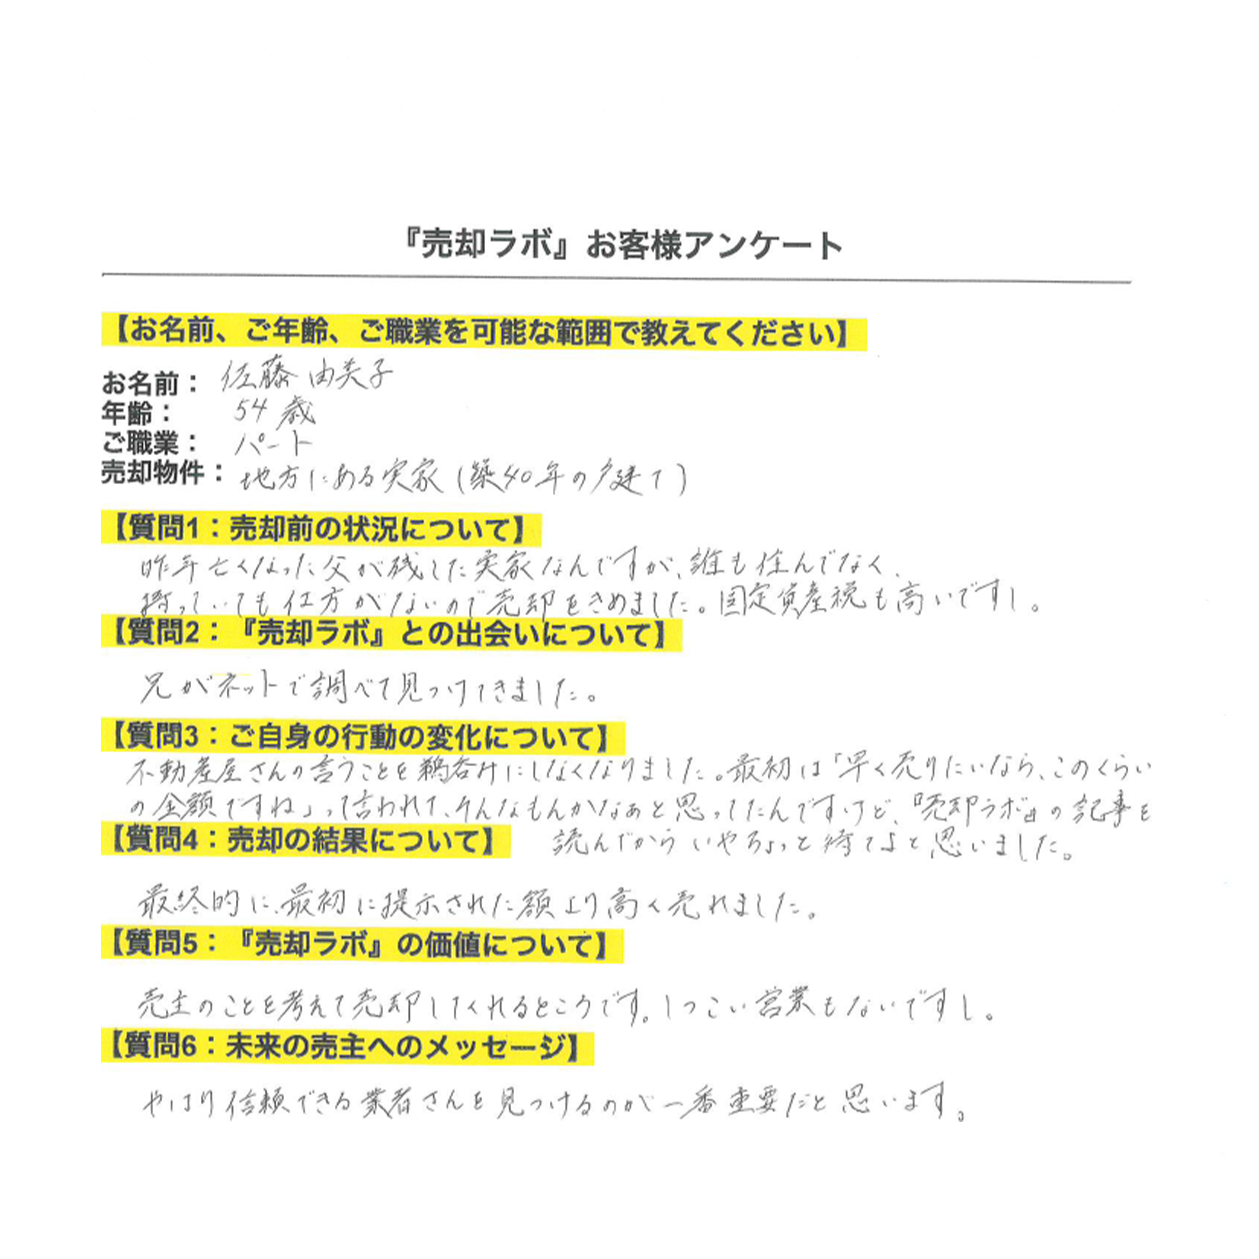 『売却ラボ』お客様アンケート
【お名前、ご年齢、ご職業を可能な範囲で教えてください】
お名前： 佐藤 由美子
年齢： 54歳
ご職業： パート
売却物件： 地方にある実家（築40年の戸建て）
【質問1：売却前の状況について】
昨年亡くなった父が残した実家なんですが、誰も住んでなく、
持っていても仕方がないので売却をきめました。固定資産税も高いですし。
【質問2：『売却ラボ』との出会いについて】
兄がネットで調べて見つけてきました。
【質問3：ご自身の行動の変化について】
不動産屋さんの言うことを鵜呑みにしなくなりました。最初は「早く売りたいなら、このくらい
の金額ですね」って言われて、そんなもんかなぁと思ってたんですけど、『売却ラボ』の記事を
読んでから いやちょっと待てよと思いました。
【質問4：売却の結果について】
最終的に、最初に提示された額より高く売れました。
【質問5：『売却ラボ』の価値について】
売主のことを考えて売却してくれるところです。しつこい営業もないですし。
【質問6：未来の売主へのメッセージ】
やはり信頼できる業者さんを見つけるのが一番重要だと思います。